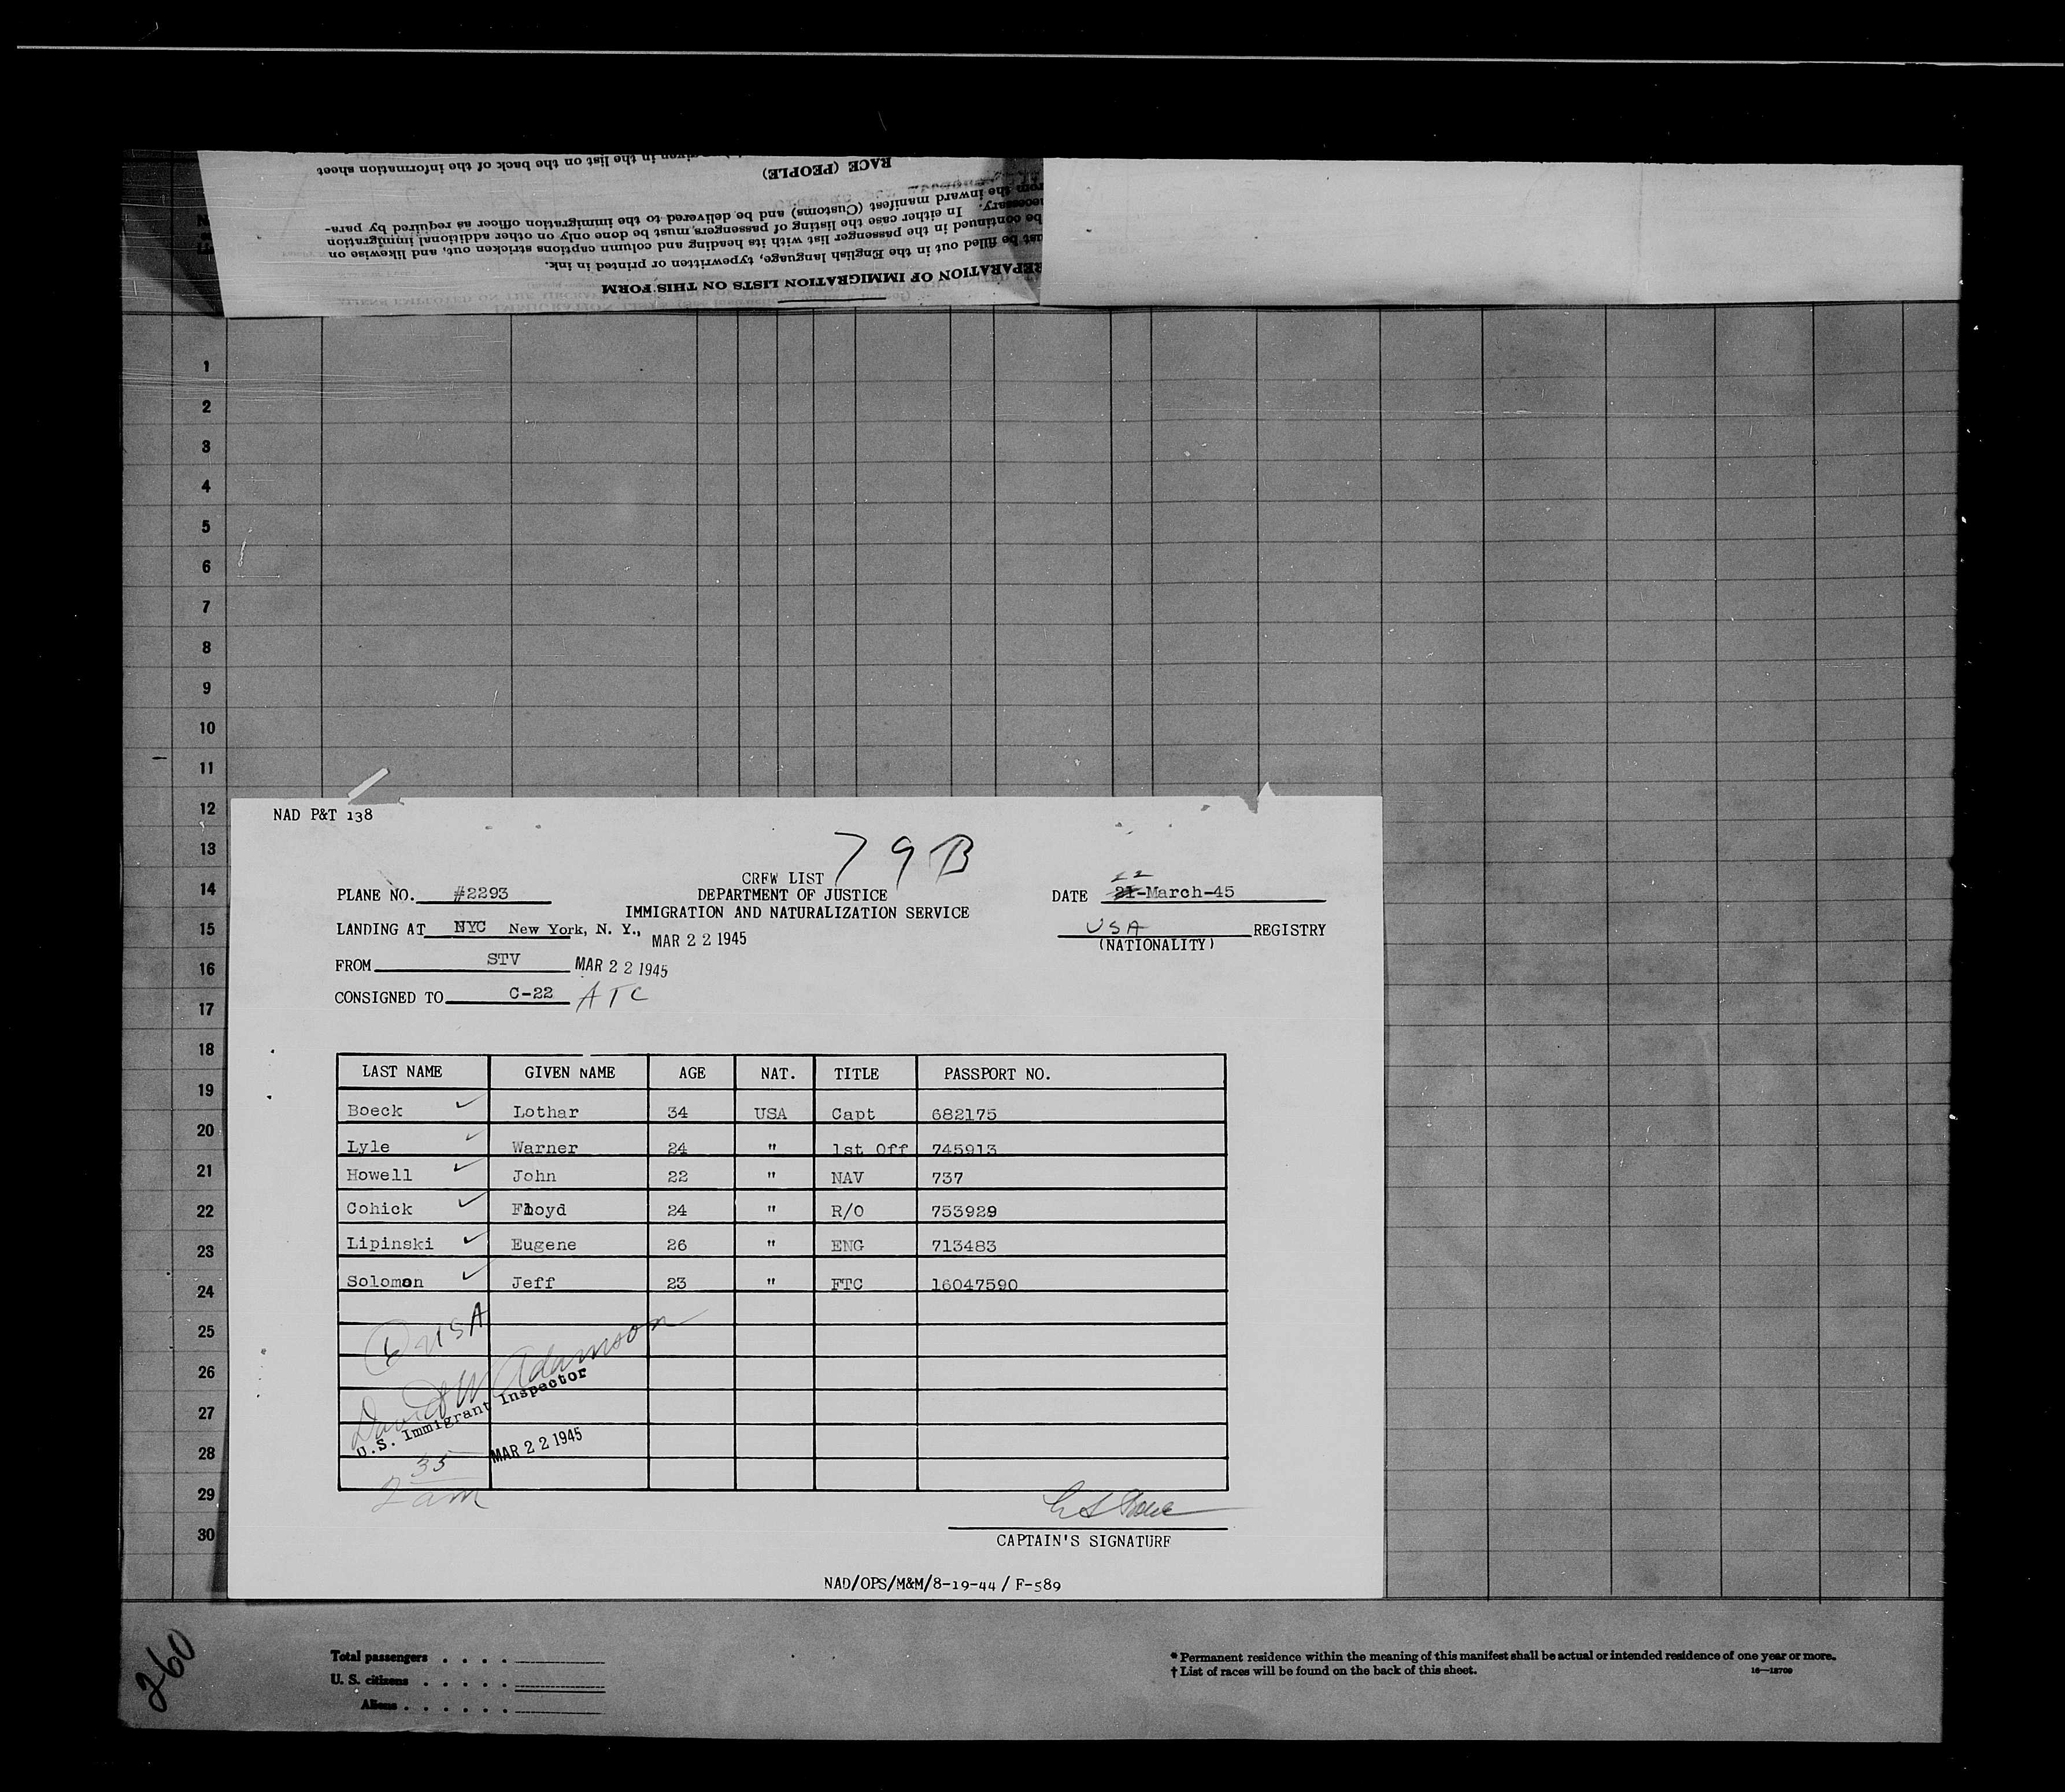 given in the list on the back of the information sheet
RACE (PEOPLE)
from the inward manifest (Customs) and be delivered to the immigration officer as required by para-
necessary. In either case the listing of passengers must be done only on other additional immigration
be continued in the passenger list with its heading and column captions stricken out, and likewise on
must be filled out in the English language, typewritten or printed in ink.
REPARATION OF IMMIGRATION LISTS ON THIS FORM
1
2
3
4
5
6
7
8
9
10
11
12
13
14
15
16
17
18
19
20
21
22
23
24
25
26
27
28
29
30
NAD P&T 138
79B
CREW LIST
DEPARTMENT OF JUSTICE
IMMIGRATION AND NATURALIZATION SERVICE
PLANE NO. #2293
DATE 21 22-March-45
LANDING AT NYC New York, N. Y., MAR 22 1945
USA REGISTRY
(NATIONALITY)
FROM STV MAR 22 1945
CONSIGNED TO C-22 ATC
LAST NAME GIVEN NAME AGE NAT. TITLE PASSPORT NO.
Boeck ✓ Lothar 34 USA Capt 682175
Lyle ✓ Warner 24 " 1st Off 745913
Howell ✓ John 22 " NAV 737
Cohick ✓ Floyd 24 " R/O 753929
Lipinski ✓ Eugene 26 " ENG 713483
Solomon ✓ Jeff 23 " FTC 16047590
6 USA
David W Adamson
U.S. Immigrant Inspector
MAR 22 1945
2 35 am
CAPTAIN'S SIGNATURE
NAD/OPS/M&M/8-19-44/F-589
260
Total passengers . . . .
U. S. citizens . . . . .
Aliens . . . . . .
* Permanent residence within the meaning of this manifest shall be actual or intended residence of one year or more.
† List of races will be found on the back of this sheet.
16—18709